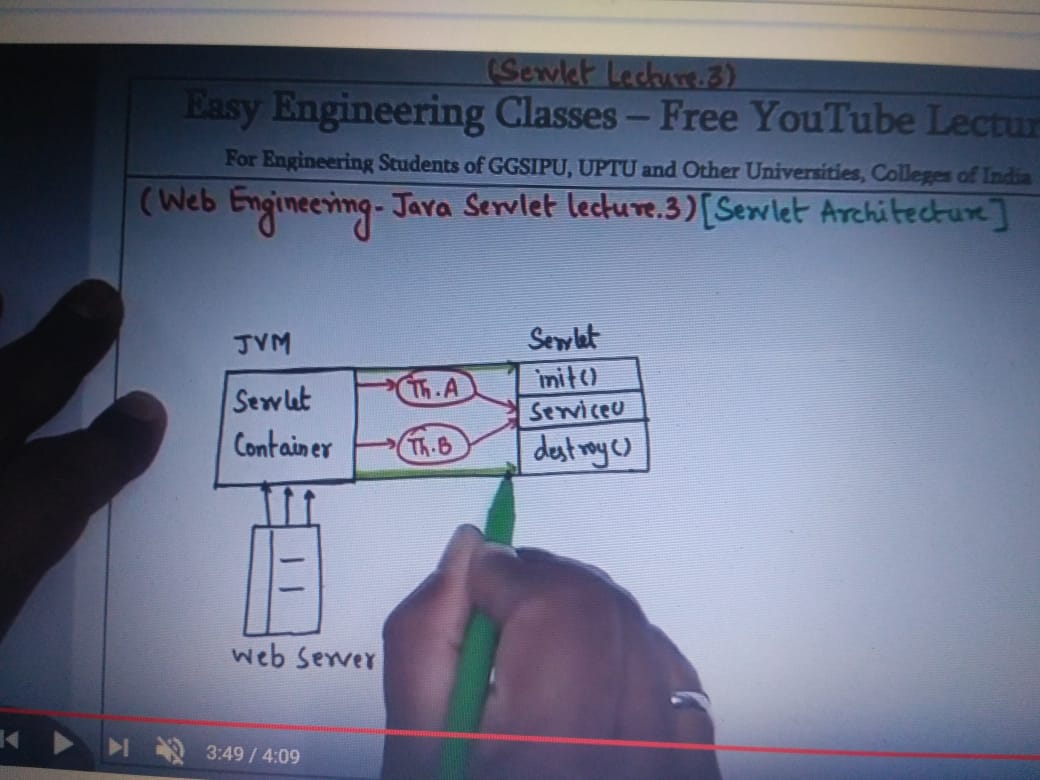 (Servlet Lecture.3)
Easy Engineering Classes – Free YouTube Lectur
For Engineering Students of GGSIPU, UPTU and Other Universities, Colleges of India
(Web Engineering - Java Servlet lecture.3) [Servlet Architecture]
JVM
Servlet
Servlet
Container
Th.A
Th.B
init()
Service()
destroy()
Web Server
3:49 / 4:09